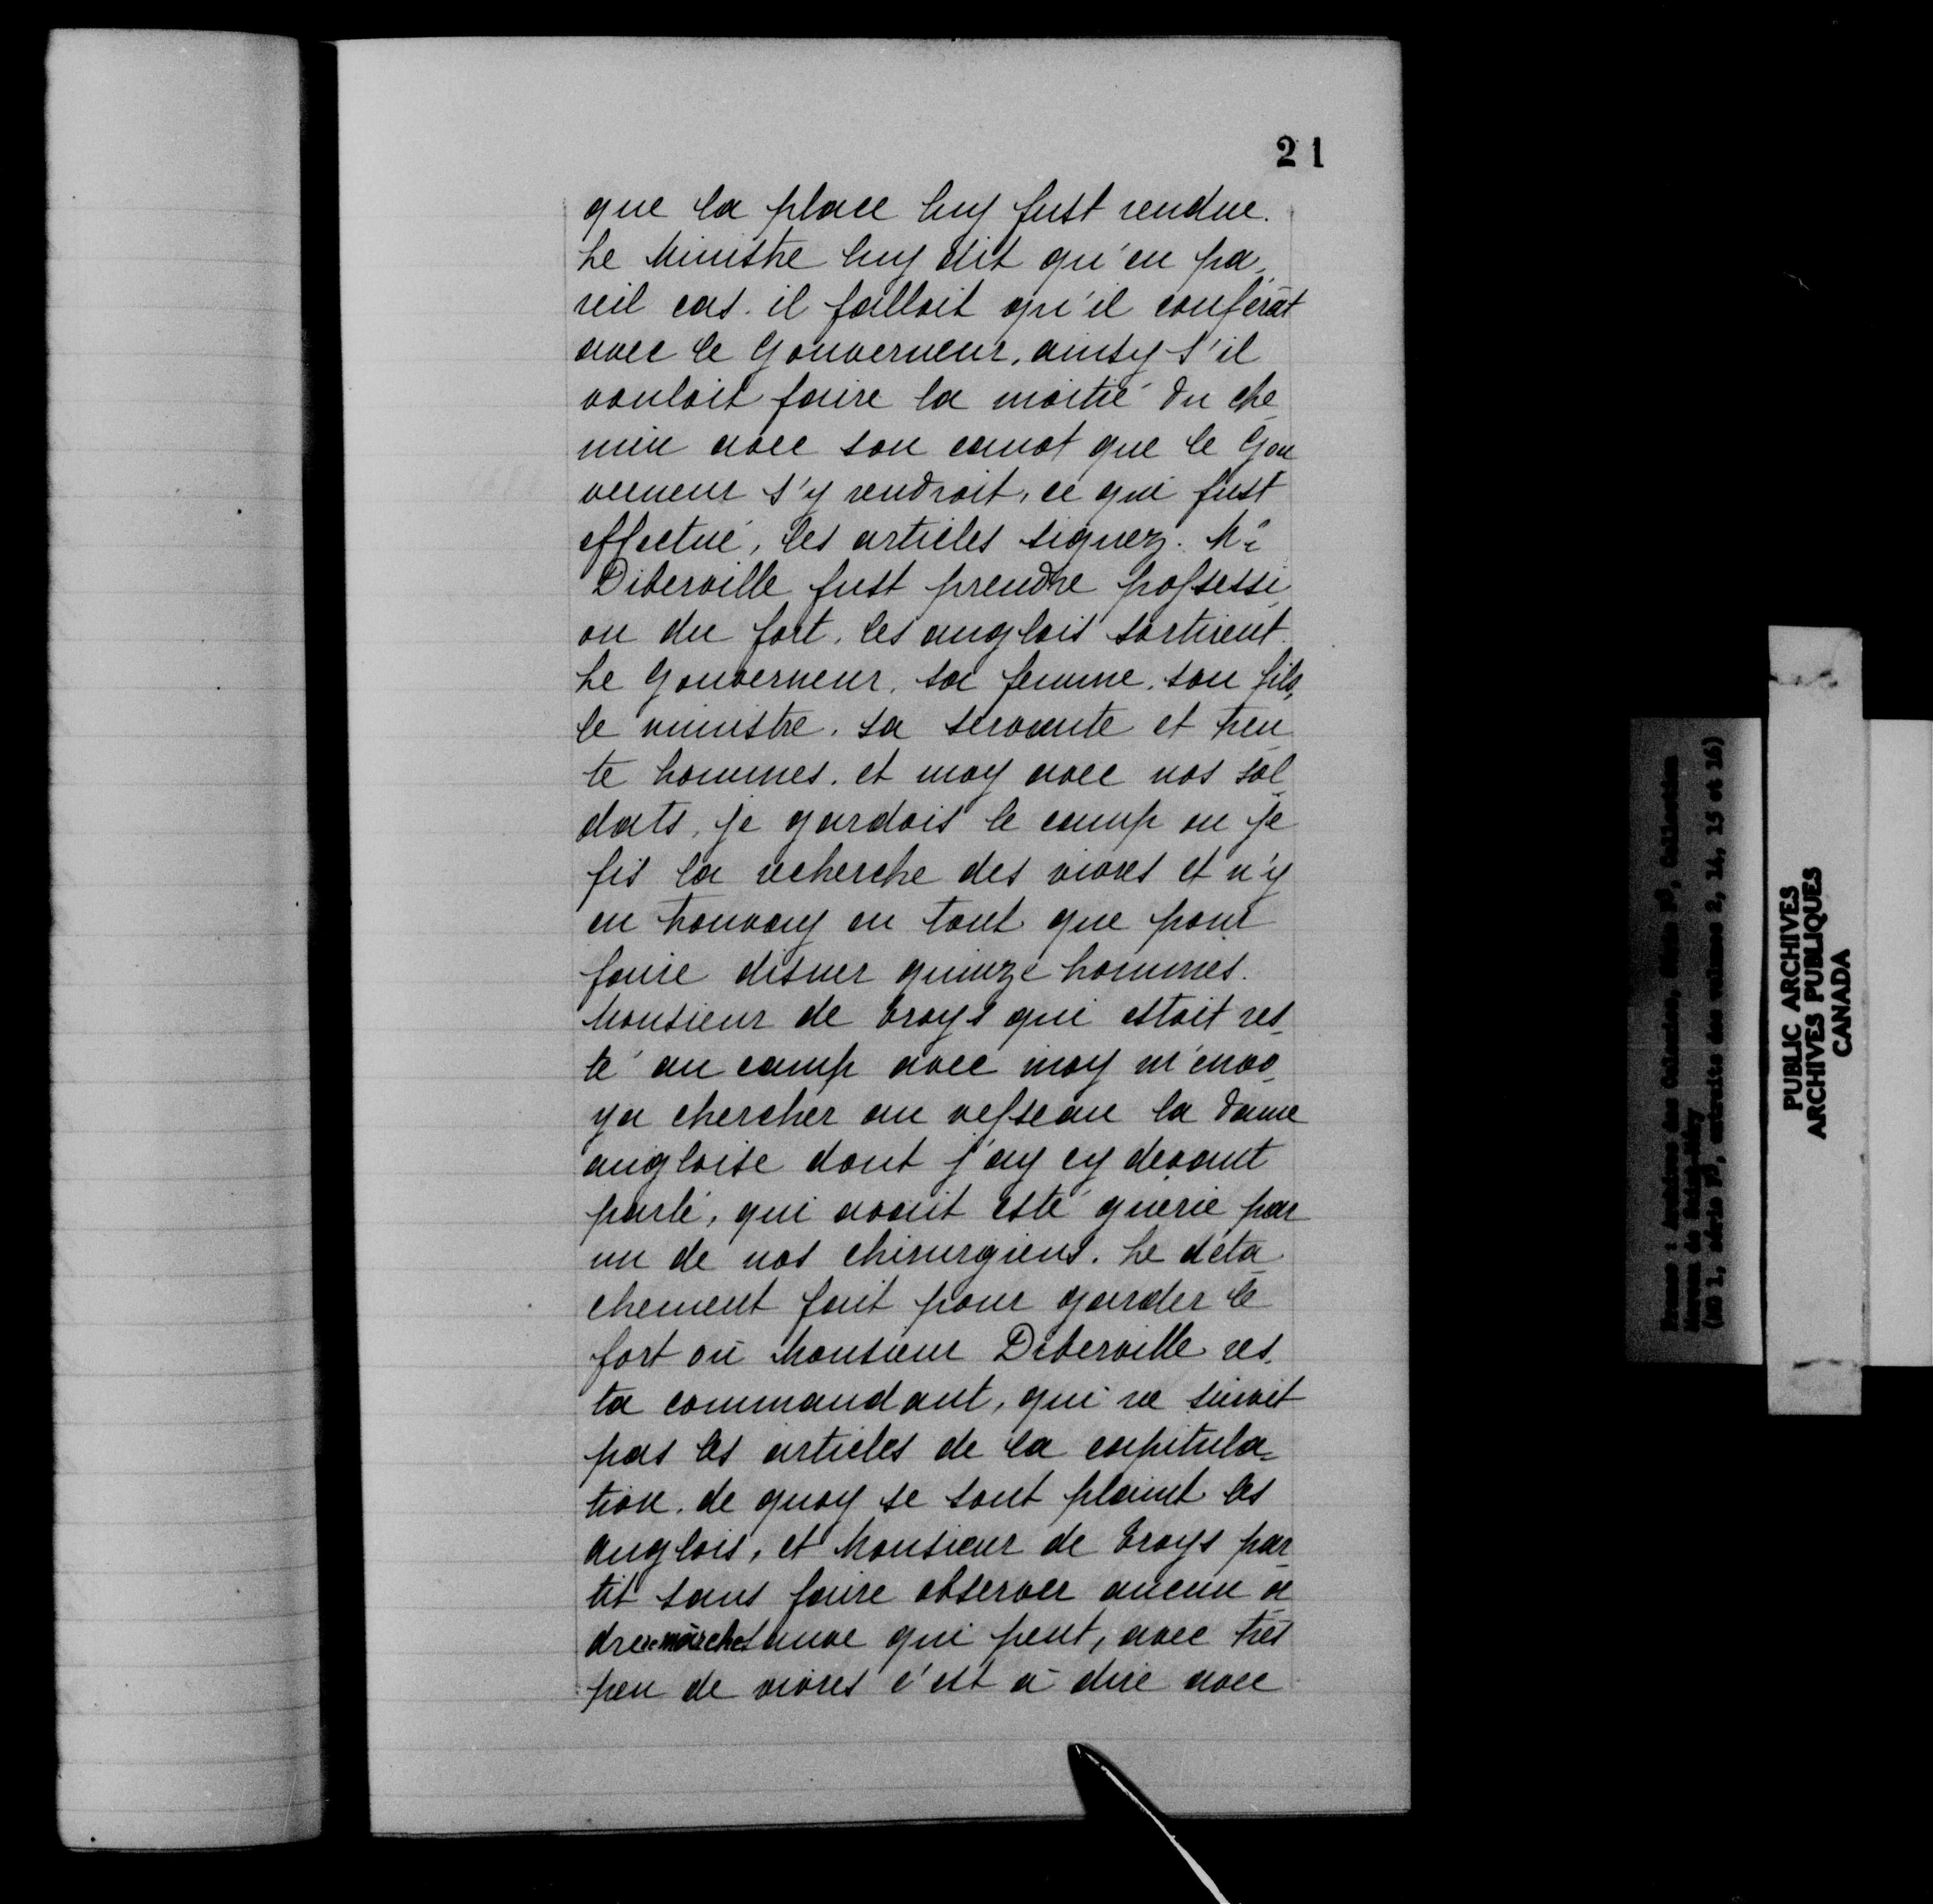 21
que la place luy fust rendue.
Le Ministre luy dit qu'en pa-
reil cas. il falloit qu'il conferât
avec le Gouverneur, ainsy s'il
vouloit faire la moitié du che-
min avec son canot que le Gou
verneur s'y rendroit, ce qui fust
effectué, les articles signez. Mr
Diberville fust prendre possessi-
on du fort, les anglois sortirent.
Le Gouverneur, sa femme, son fils,
le ministre, sa servante et tren
te hommes, et moy avec nos sol-
dats, je gardois le camp ou je
fis la recherche des vivres et n'y
en trouvay en tout que pour
faire disner quinze hommes.
Monsieur de Troys qui estoit res-
té au camp avec moy m'envo-
ya chercher au vesseau la dame
angloise dont j'ay cy devant
parlé, qui avoit esté guerie par
un de nos chirurgiens. Le déta-
chement fait pour garder le
fort où Monsieur Diberville res-
ta commandant, qui ne suivit
pas les articles de la capitula-
tion, de quoy se sont plaint les
anglois, et Monsieur de Troys par-
tit sans faire observer aucun or
dre marche sauve qui peut, avec très
peu de vivres c'est à dire avec
PUBLIC ARCHIVES
ARCHIVES PUBLIQUES
CANADA
France : Archives des Colonies, Collection
Moreau de Saint-Méry
(MG 1, série F3, extraits des volumes 2, 14, 15 et 16)